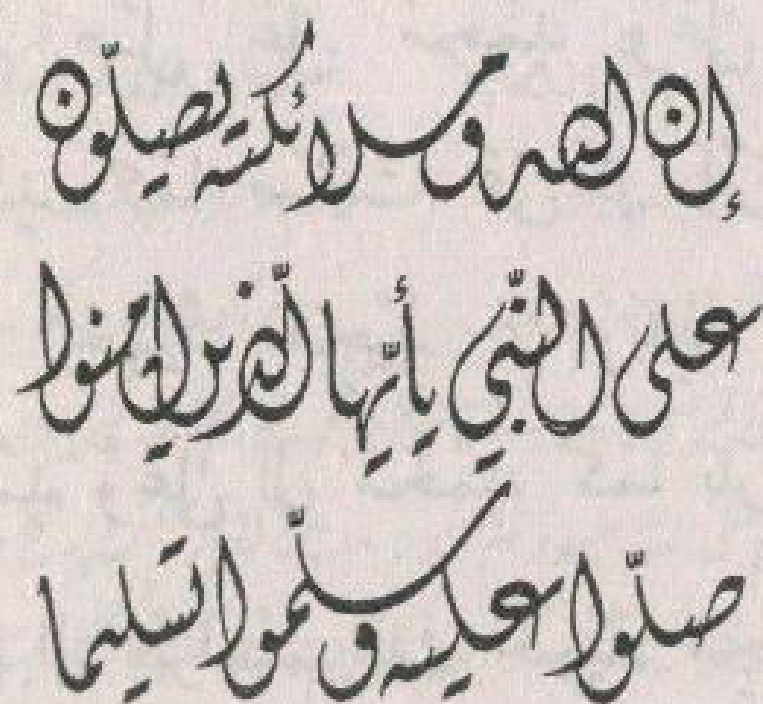 إن الله وملائكته يصلّون
على النّبيّ يأيّها الّذين امنوا
صلّوا عليه وسلّموا تسليما